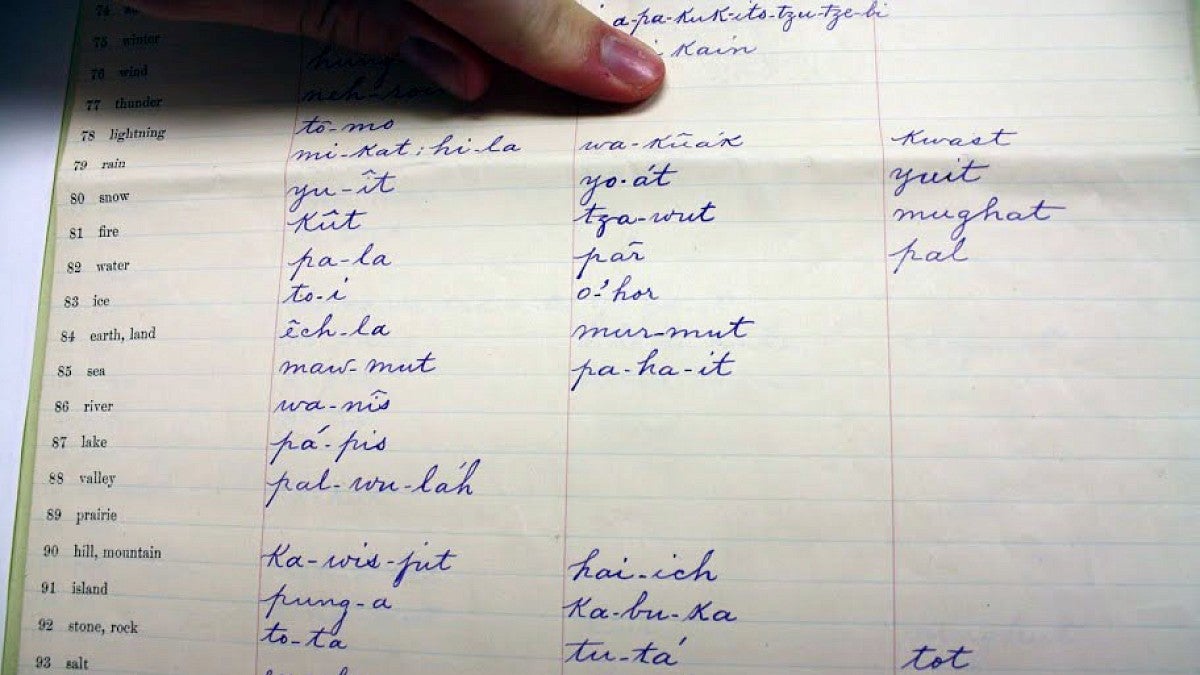 74 a-pa-kuk-ito-tzu-tze-bi
75 winter kain
76 wind
77 thunder
78 lightning tō-mo
79 rain mi-kat:hi-la wa-kūák kwast
80 snow yu-ît yo-át yuit
81 fire kût tza-wut mughat
82 water pa-la pār pal
83 ice to-i o-'hor
84 earth, land êch-la mur-mut
85 sea maw-mut pa-ha-it
86 river wa-nîs
87 lake pá-pis
88 valley pal-wu-láh
89 prairie
90 hill, mountain Ka-wis-pit hai-ich
91 island pung-a Ka-bu-Ka
92 stone, rock to-ta tu-tá tot
93 salt